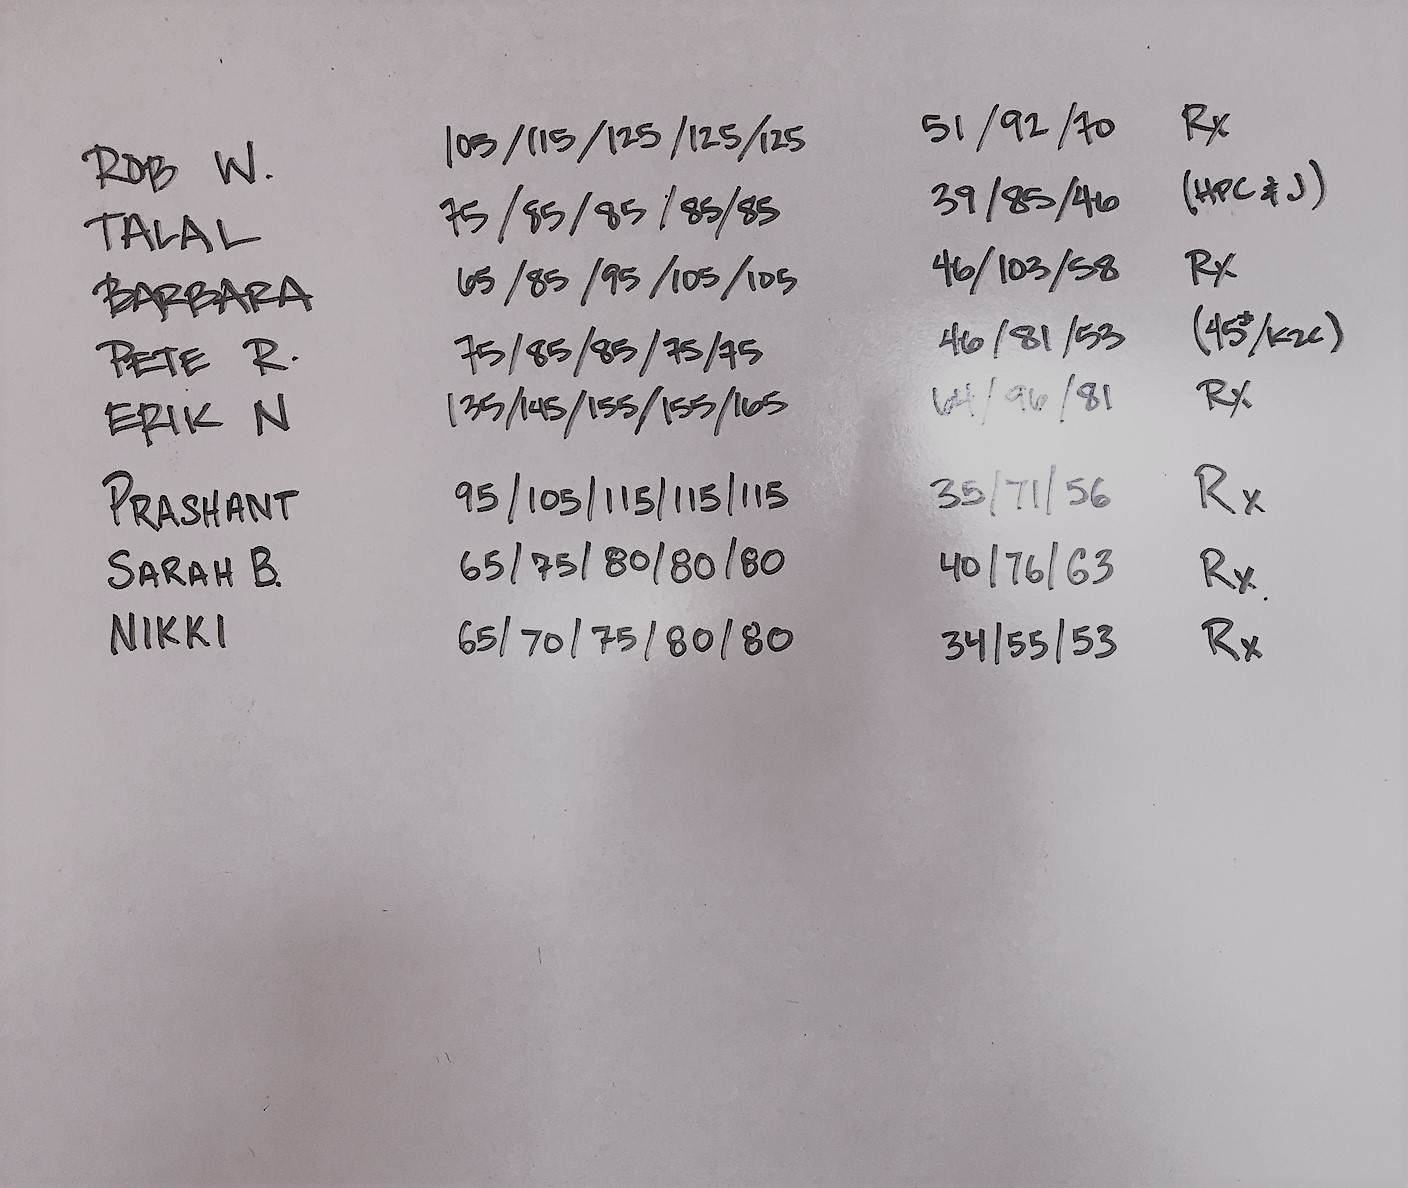 ROB W. 105/115/125/125/125 51/92/70 Rx
TALAL 75/85/85/85/85 39/85/46 (HPC & J)
BARBARA 65/85/95/105/105 46/103/58 Rx
PETE R. 75/85/85/75/75 46/81/53 (45#/K2C)
ERIK N 135/145/155/155/165 64/96/81 Rx
PRASHANT 95/105/115/115/115 35/71/56 Rx
SARAH B. 65/75/80/80/80 40/76/63 Rx.
NIKKI 65/70/75/80/80 34/55/53 Rx